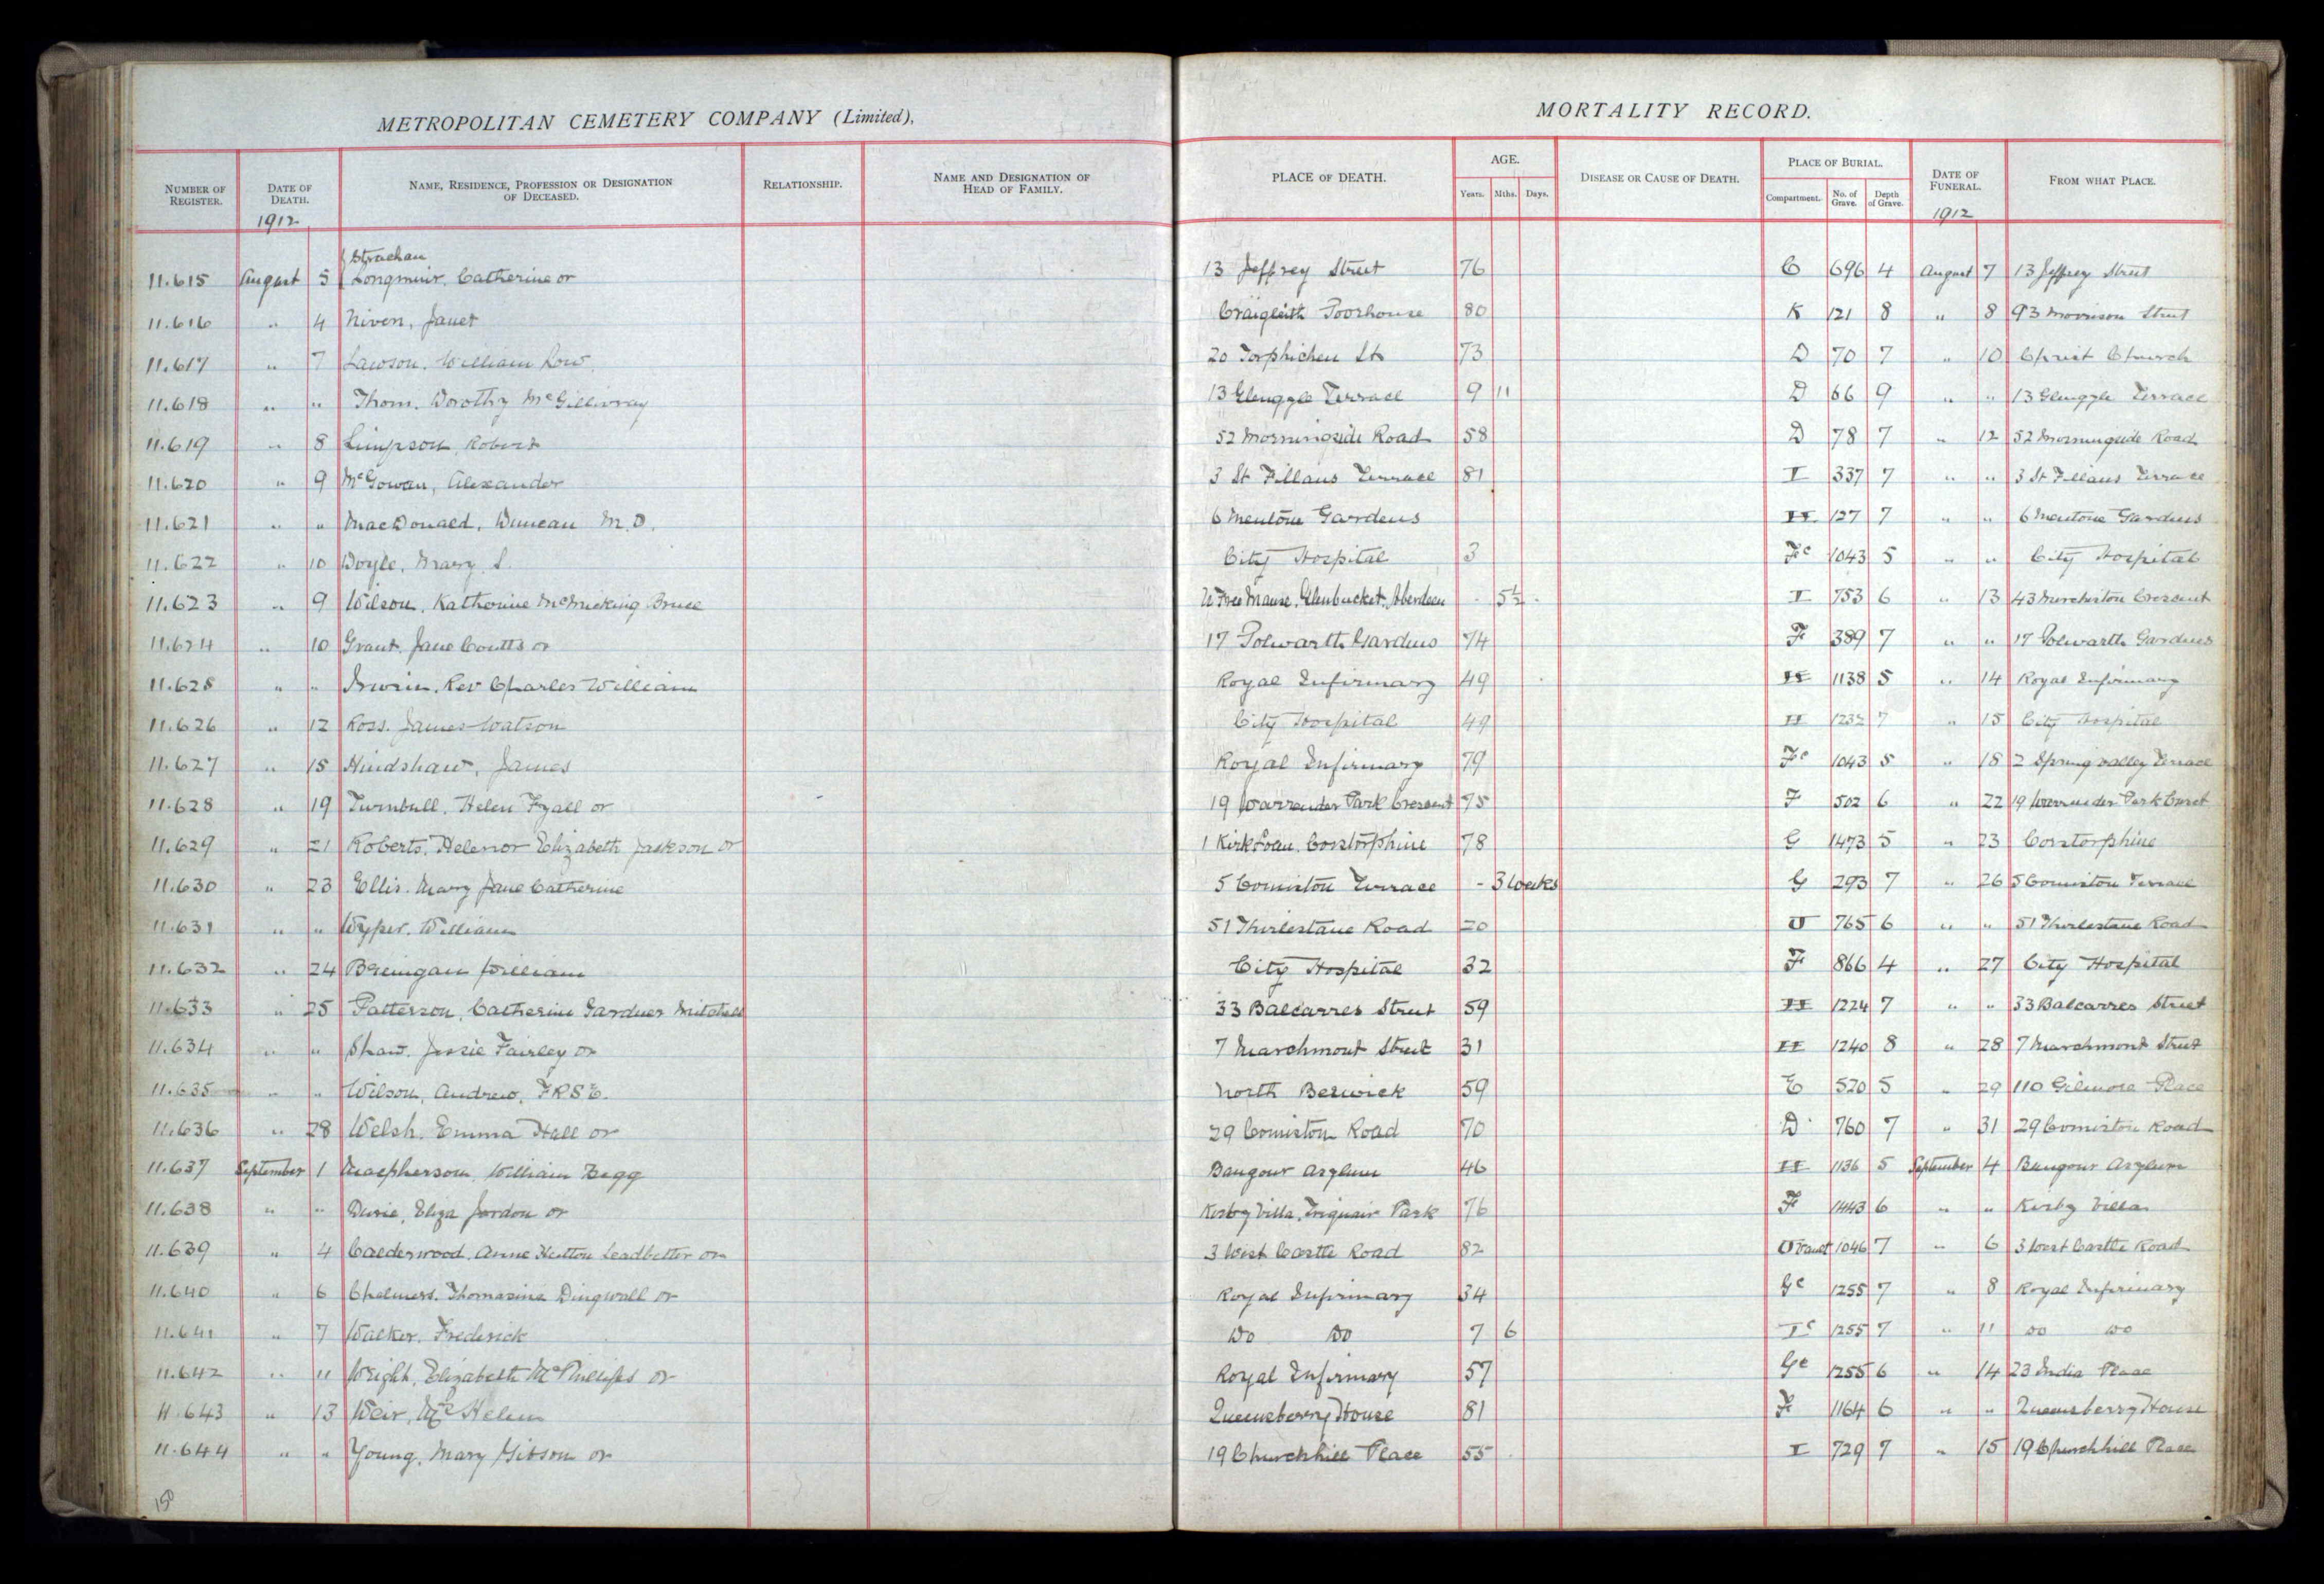 METROPOLITAN CEMETERY COMPANY (Limited),
MORTALITY RECORD.
NUMBER OF REGISTER. DATE OF DEATH. NAME, RESIDENCE, PROFESSION OR DESIGNATION OF DECEASED. RELATIONSHIP. NAME AND DESIGNATION OF HEAD OF FAMILY. PLACE OF DEATH. AGE. Years. Mths. Days. DISEASE OR CAUSE OF DEATH. PLACE OF BURIAL. Compartment. No. of Grave. Depth of Grave. DATE OF FUNERAL. FROM WHAT PLACE.
1912 1912
Strachan
11.615 August 5 Longmuir, Catherine or 13 Jeffrey Street 76 C 696 4 August 7 13 Jeffrey Street
11.616 " 4 Niven, Janet Craigleith Poorhouse 80 K 121 8 " 8 93 Morrison Street
11.617 " 7 Lawson, William Low 20 Torphichen St 73 D 70 7 " 10 Christ Church
11.618 " " Thom, Dorothy McGillivray 13 Glengyle Terrace 9 11 D 66 9 " " 13 Glengyle Terrace
11.619 " 8 Simpson, Robert 52 Morningside Road 58 D 78 7 " 12 52 Morningside Road
11.620 " 9 McGowan, Alexander 3 St Fillans Terrace 81 I 337 7 " " 3 St Fillans Terrace
11.621 " " MacDonald, Duncan M.D. 6 Mentone Gardens H 127 7 " " 6 Mentone Gardens
11.622 " 10 Doyle, Mary S. City Hospital 3 Fc 1043 5 " " City Hospital
11.623 " 9 Wilson, Katherine McMicking Bruce U Free Manse, Glenbucket, Aberdeen - 5½ - I 753 6 " 13 43 Merchiston Crescent
11.624 " 10 Grant, Jane Coutts or 17 Polwarth Gardens 74 F 389 7 " " 17 Polwarth Gardens
11.625 " " Irwin, Rev Charles William Royal Infirmary 49 H 1138 5 " 14 Royal Infirmary
11.626 " 12 Ross, James Watson City Hospital 49 H 1232 7 " 15 City Hospital
11.627 " 15 Hindshaw, James Royal Infirmary 79 Fc 1043 5 " 18 2 Spring valley Terrace
11.628 " 19 Turnbull, Helen Fyall or 19 Warrender Park Crescent 75 F 502 6 " 22 19 Warrender Park Cresct
11.629 " 21 Roberts, Helenor Elizabeth Jackson or 1 Kirk Loan, Corstorphine 78 G 1473 5 " 23 Corstorphine
11.630 " 23 Ellis, Mary Jane Catherine 5 Comiston Terrace - 3 Weeks G 293 7 " 26 5 Comiston Terrace
11.631 " " Wyper, William 51 Thirlestane Road 20 J 765 6 " " 51 Thirlestane Road
11.632 " 24 William City Hospital 32 F 866 4 " 27 City Hospital
11.633 " 25 Patterson, Catherine Gardner Mitchell 33 Balcarres Street 59 H 1224 7 " " 33 Balcarres Street
11.634 " " Shaw, Jessie Fairley or 7 Marchmont Street 31 H 1240 8 " 28 7 Marchmont Street
11.635 " " Wilson, Andrew, FRSE. North Berwick 59 E 520 5 " 29 110 Gilmore Place
11.636 " 28 Welsh, Emma Hall or 29 Comiston Road 70 D 760 7 " 31 29 Comiston Road
11.637 September 1 Macpherson, William Begg Bangour Asylum 46 H 1136 5 September 4 Bangour Asylum
11.638 " " Durie, Eliza Jordon or Kirby Villa, Traquair Park 76 F 1443 6 " " Kirby Villa
11.639 " 4 Calderwood, Anne Hutton Leadbetter or 3 West Castle Road 82 J vault 1046 7 " 6 3 West Castle Road
11.640 " 6 Chalmers, Thomasina Dingwall or Royal Infirmary 34 Gc 1255 7 " 8 Royal Infirmary
11.641 " 7 Walker, Frederick Do Do 7 6 Ic 1255 7 " 11 Do Do
11.642 " 11 Wright, Elizabeth McPhillips or Royal Infirmary 57 Gc 1255 6 " 14 23 India Place
11.643 " 13 Weir, Helen Queensberry House 81 F 1164 6 " " Queensberry House
11.644 " " Young, Mary Gibson or 19 Churchhill Place 55 I 729 7 " 15 19 Churchhill Place
150